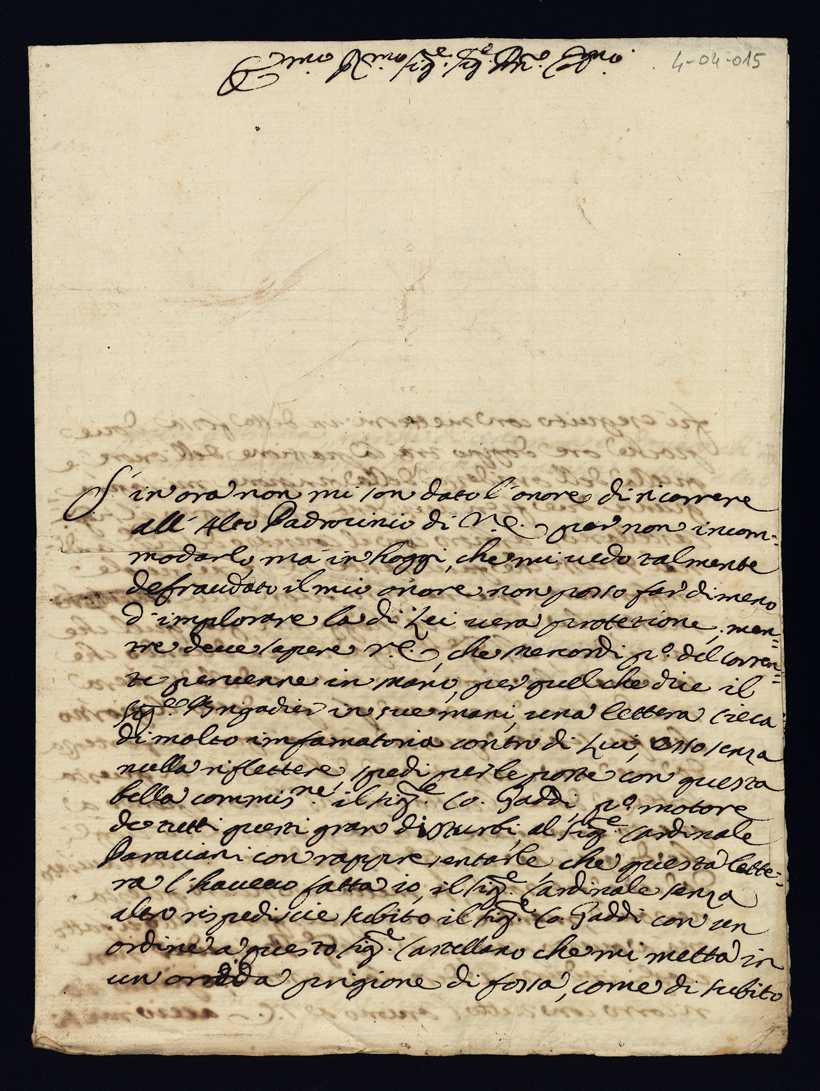 Em.mo R.mo Sig.e Sig.e Prn.e Col.mo
4-04-015
Sin ora non mi son dato l'onore di ricorrere
all'Alto Padrocinio di V.E. per non incom=
modarlo, ma in hoggi, che mi vedo talmente
defraudato il mio onore non posso far di meno
d'implorare la di Lei vera protetione, men=
tre deve sapere V.E., che Mercordi p.o del corren=
te pervenne in mano, per quel che dice il
Sig.e Brigadier in sue mani, una lettera cieca
di molto infamatoria contro di Lui, esso senza
nulla riflettere, spedì per le poste con questa
bella commis.ne il Sig.e Co. Gaddi p.o motore
de tutti questi gran disturbi al Sig.e Cardinale
Paraciani con rappresentarle che questa lette=
ra l'havevo fatta io, il Sig.e Cardinale senza
altro rispediscie subito il Sig.e Co. Gaddi con un
ordine a questo Sig.e Castellano che mi metta in
un orrida prigione di fossa, come di subito